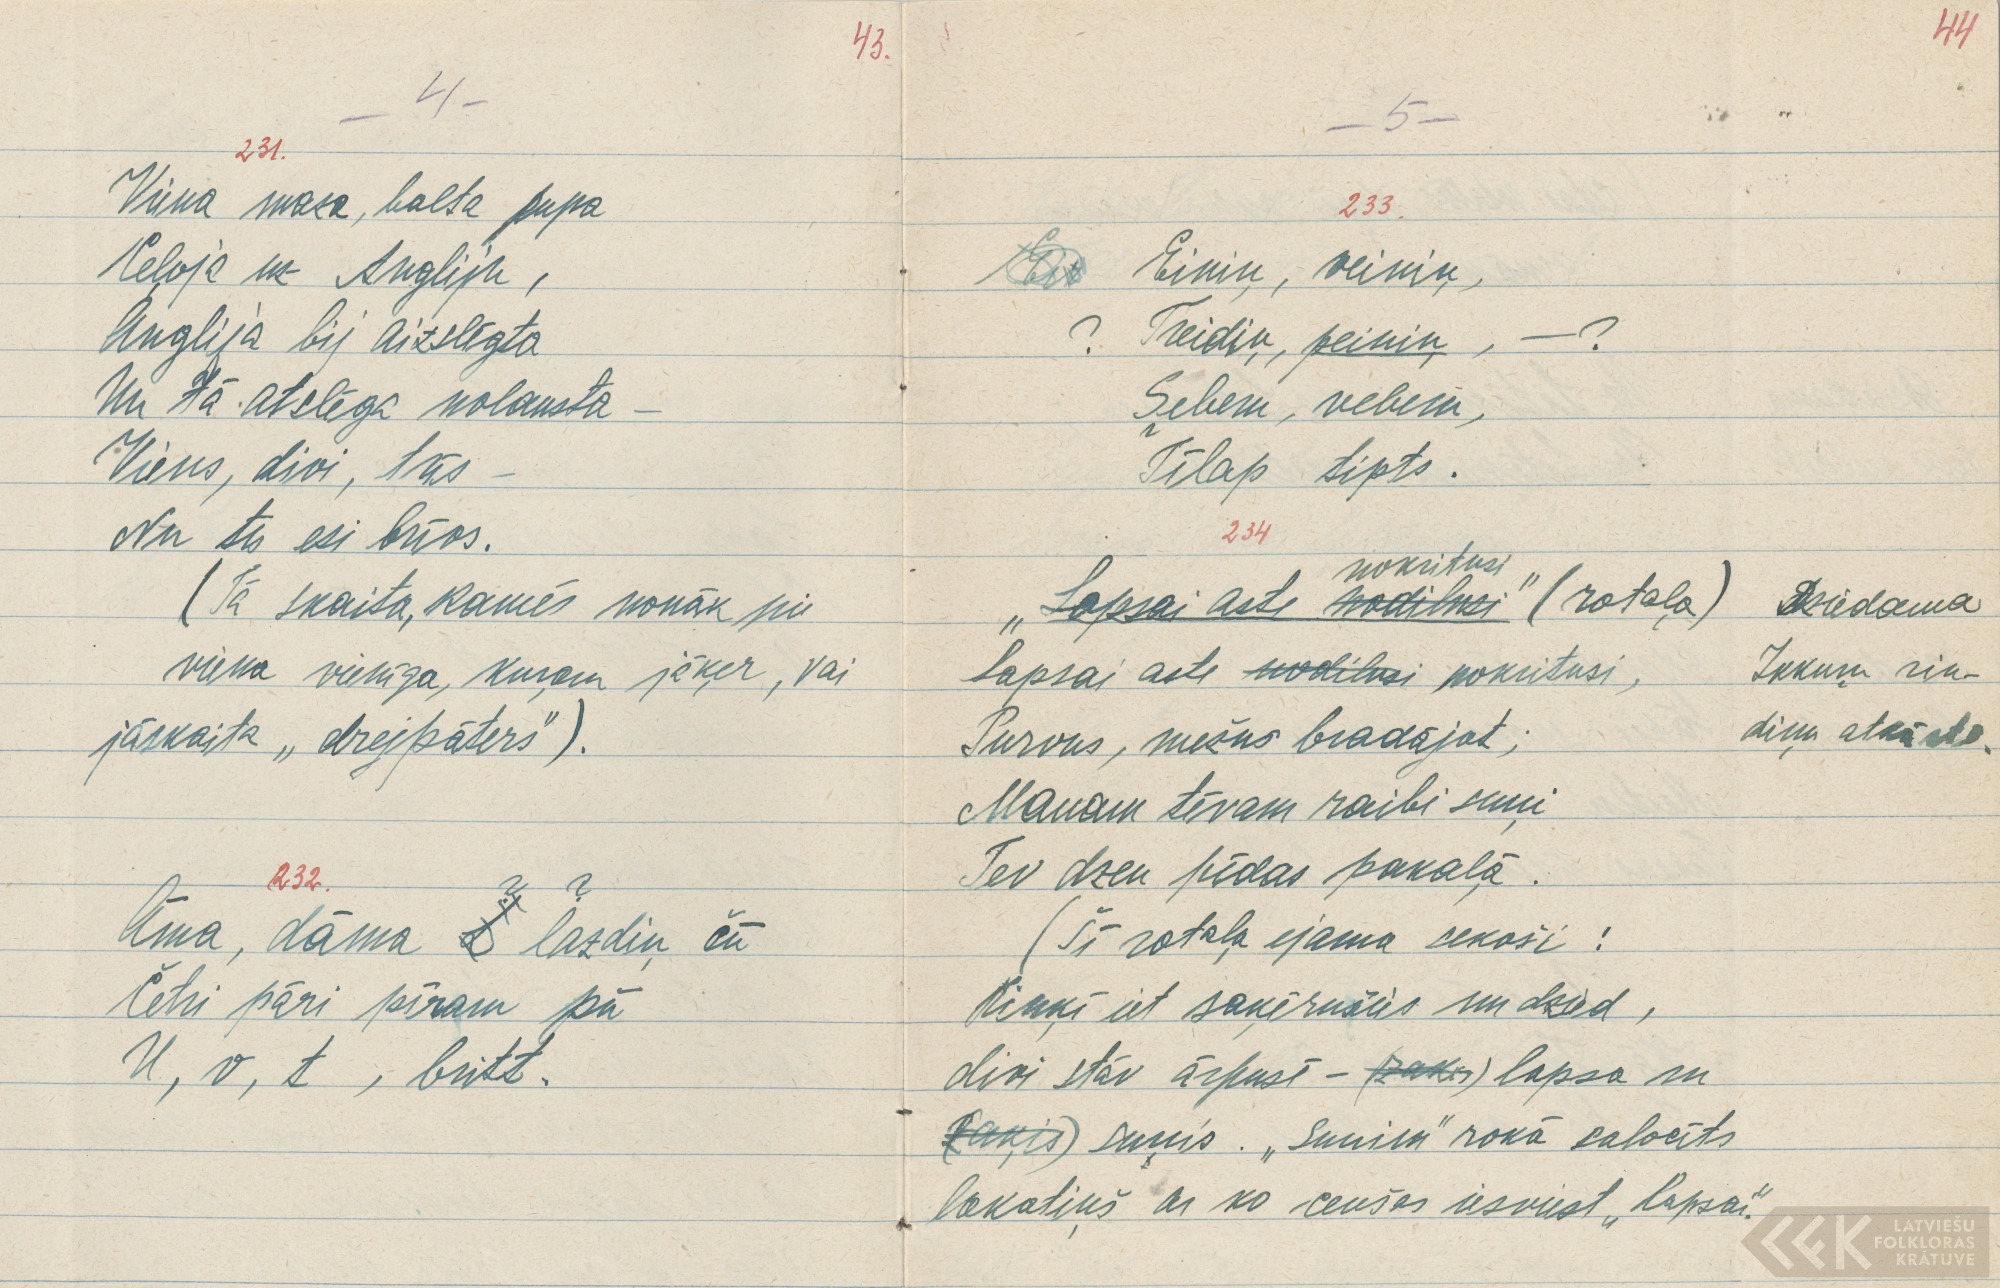 43.
– 4 –
231.
Viena masa, balta pupa
Ceļoja uz Angliju,
Anglija bij aizslēgta
Un tā atslēga nolausta –
Viens, divi, trīs –
Nu tu esi brīvs.
(Tā skaita, kamēr nonāk pie
viena vienīga, kuŗam jāķer, vai
jāskaita „drejpāters").
232.
Āma, dāma ? ? lazdiņ čū
Četri pāri pīram pū
U, v, t, britt.
44
– 5 –
233.
Einiņ, veiniņ,
? Treidiņ, peiniņ, –?
Šebem, vebem,
Tīlap tipts.
234
nokritusi
„Lapsai aste nodilusi" (rotaļa)
Lapsai aste nodilusi nokritusi,
Purvus, mežus bradājot;
Manam tēvam raibi suņi
Tev dzen pēdas pakaļā.
(Šī rotaļa ejama sekoši:
Riņķī iet saķērušies un dzied,
divi stāv ārpusē – (zaķis) lapsa un
(zaķis) suņis. „Sunim" rokā salocīts
lakatiņš ar ko cenšas iesviest „lapsai".
Dziedama
Ikkuŗu rin-
diņu atkārto.
LATVIEŠU
FOLKLORAS
KRĀTUVE